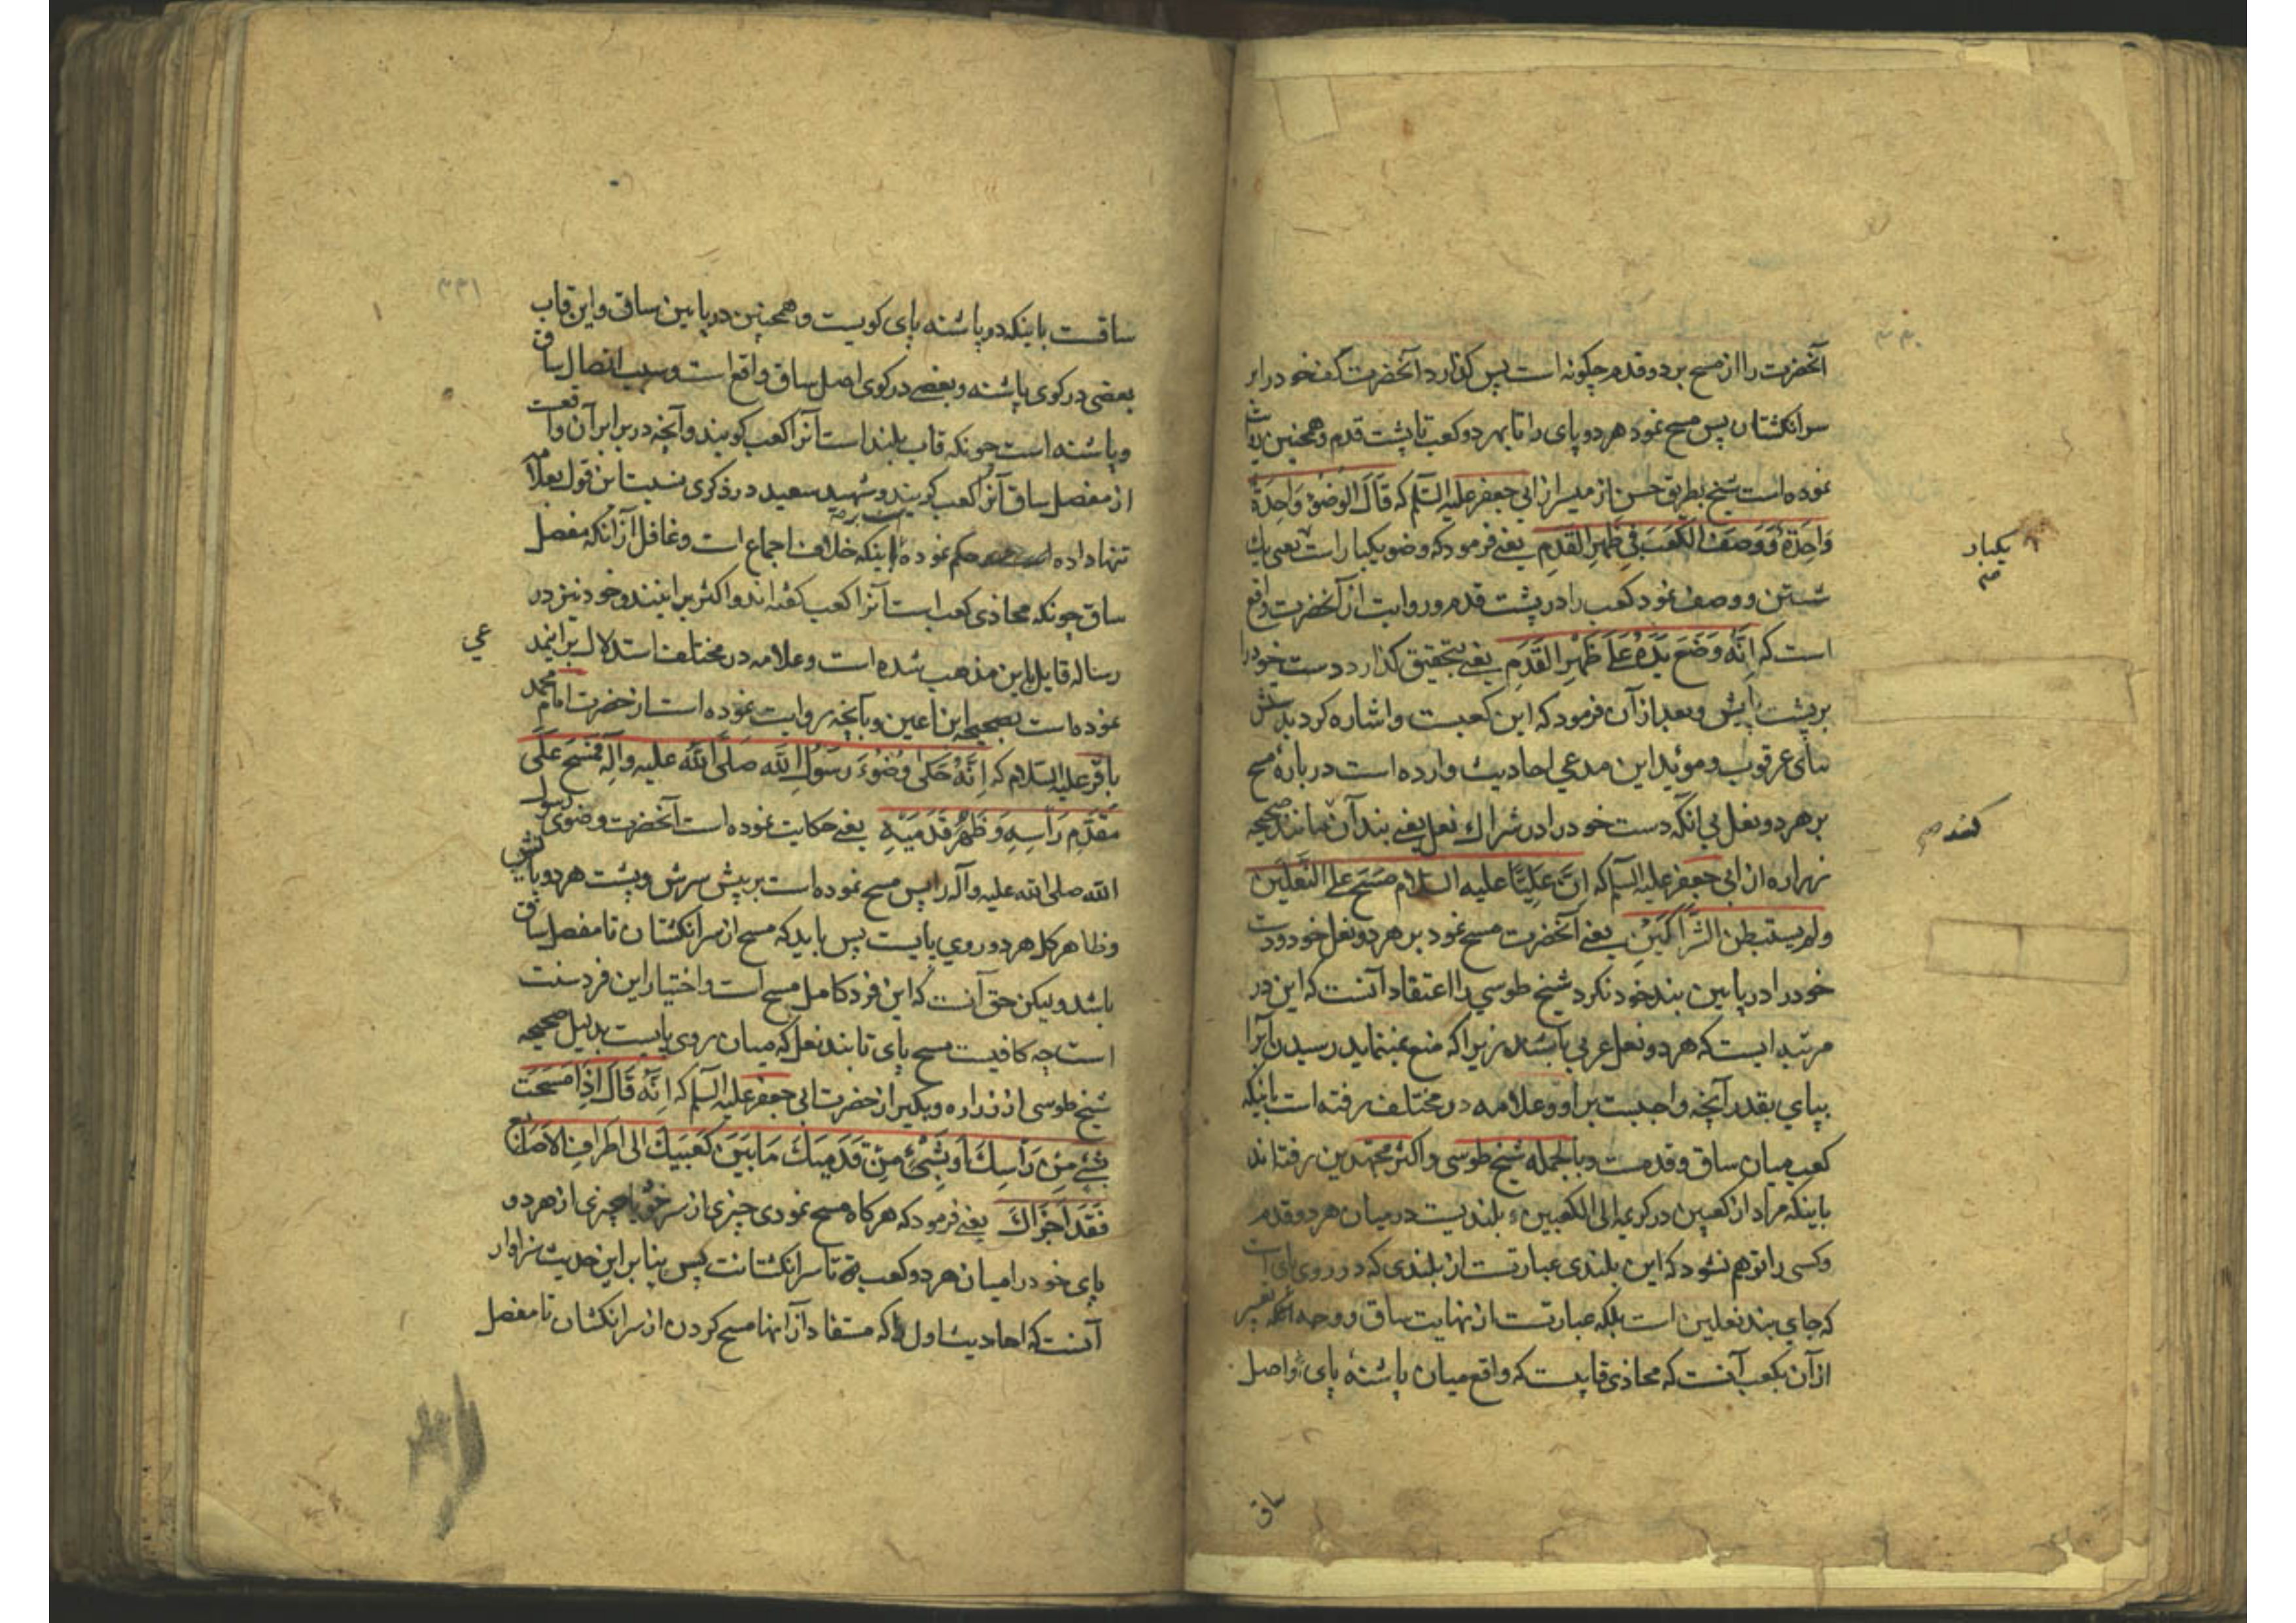 ۳۳۰
آنحضرت را از مسح بر دو قدم چگونه است پس گذارد آنحضرت کف خود را بر
سر انگشتان پس مسح نمود هر دو پای را تا بهر دو کعب تا پشت قدم و همچنین روایت
نموده است شیخ بطریق حسن از میسر از ابی جعفر علیه السلم که قَالَ الوضوُ وَاحِدَةٌ
وَاحِدَةٌ وَوَصَفَ الکَعَبَ فی ظَهرِ القَدَمِ یعنی فرمود که وضو یکبار است یعنی یک
یکبار
شستن و وصف نمود کعب را در پشت قدم و روایت از آنحضرت واقع
است که اِنَّهُ وَضَعَ یَدَهُ عَلَی ظَهرِ القَدَمِ یعنی بتحقیق گذارد دست خود را
بر پشت پایش و بعد از آن فرمود که این کعبست و اشاره کرد بدستش
بپای عرقوب و موئید این مدعی احادیث وارده است در باره مسح
بر هر دو نعل بی انکه دست خود را در شراک نعل یعنی بند آن مانند صحیحه
کند صح
زراره از ابی جعفر علیه السلم که اِنَّ عَلِیّاً علیه السلام مَسَحَ علی النَّعلَین
ولم یستبطن الشِّرَاکَینِ یعنی آنحضرت مسح نمود بر هر دو نعل خود و دست
خود را در پایین بند خود نکرد شیخ طوسی را اعتقاد آنست که این در
مرتبه ایست که هر دو نعل عربی باشند زیرا که منع نمینماید رسیدن آنرا
بپای بقدر آنچه واجبست بر او و علامه در مختلف رفته است باینکه
کعب میان ساق و قدمست و بالجمله شیخ طوسی و اکثر مجتهدین رفته اند
باینکه مراد از کعبین در کریمه الی الکعبین بلندیست در میان هر دو قدم
وکسی را توهم نشود که این بلندی عبارتست از بلندی که در روی پای است
که جای بند نعلین است بلکه عبارتست از نهایت ساق و وجه انکه تعبیر
از آن بکعب آنست که محاذی قابیست که واقع میان پاشنهٔ پای و اصل
ساق
۳۳۱
ساقست باینکه در پاشنه پای کویست و همچنین در پایین ساق و این قاب
بعضی در کوی پاشنه و بعضی در کوی اصل ساق واقع است و سبب اتصال ساق
و پاشنه است چونکه قاب بلند است آنرا کعب گویند و آنچه در برابر آن واقعست
از مفصل ساق آنرا کعب گویند و شهید سعید در ذکری نسبت این قول بعلامه
تنها داده حکم نموده باینکه خلاف اجماع است و غافل از آنکه مفصل
ساق چونکه محاذی کعب است آنرا کعب گفته اند و اکثر برانیند و خود نیز در
رساله قایل باین مذهب شده است و علامه در مختلف استدلال بر این مد
عی
نموده است بصحیحه ابنا عین و بآنچه روایت نموده است از حضرت امام محمد
باقر علیه السلام که اِنَّهُ حَکَی وُضُوءَ رَسُولِ الله صَلَّی اللهُ علیه و آله فَمَسَحَ عَلَی
مقدَّمِ رَأسِهِ وَ ظَهرِ قَدَمَیهِ یعنی حکایت نموده است آنحضرت وضوی رسول
الله صلی الله علیه و آله را پس مسح نموده است بر پیش سرش و پشت هر دو پایش
و ظاهر کل هر دو روی پایست پس باید که مسح از سر انگشتان تا مفصل ساق
باشد و لیکن حق آنست که این فرد کامل مسح است و اختیار این فرد سنت
است چه کافیست مسح پای تا بند نعل که میان روی پایست بدلیل صحیحه
شیخ طوسی از زراره و بکیر از حضرت ابی جعفر علیه السلم که اِنَّهُ قَالَ اِذَا مَسَحَت
بِشَیْءٍ مِن رَأسِکَ اَو بِشَیْءٍ مِن قَدَمِیکَ مَا بَینَ کَعبَیکَ الی اَطرَافِ الاَصَابِع
فَقَد اَجزَاکَ یعنی فرمود که هر گاه مسح نمودی چیزی از سر خود یا چیزی از هر دو
پای خود را میان هر دو کعب تا سر انگشتانت پس بنابر این حدیث سزاوار
آنست که احادیث اول که مستفاد از آنها مسح کردن از سر انگشتان تا مفصل